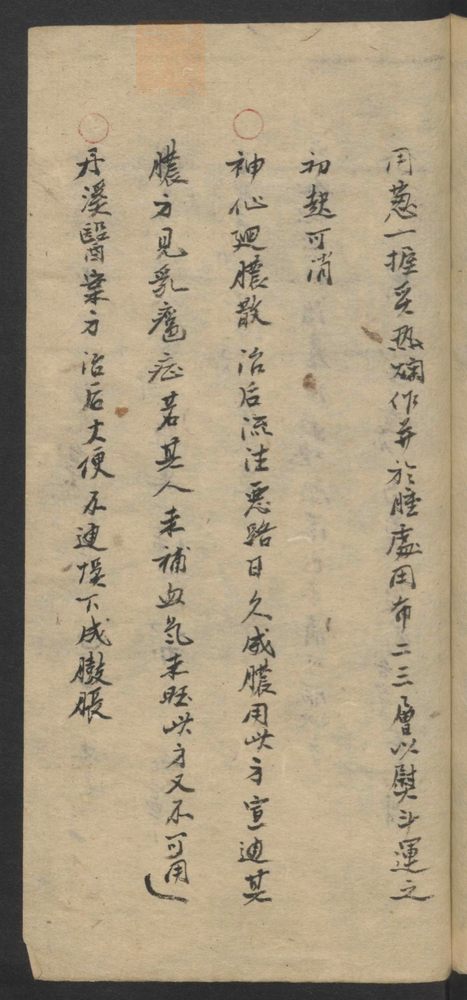 用葱一握炙热爛作并於腫處用布二三層以熨斗運之
初起可消
○神仙廻膿散 治后流注惡路日久成膿用此方宣通其
膿方見乳癰症若其人未補血氣未旺此方又不可用
○丹溪醫案方治后大便不通悮下成臌脹